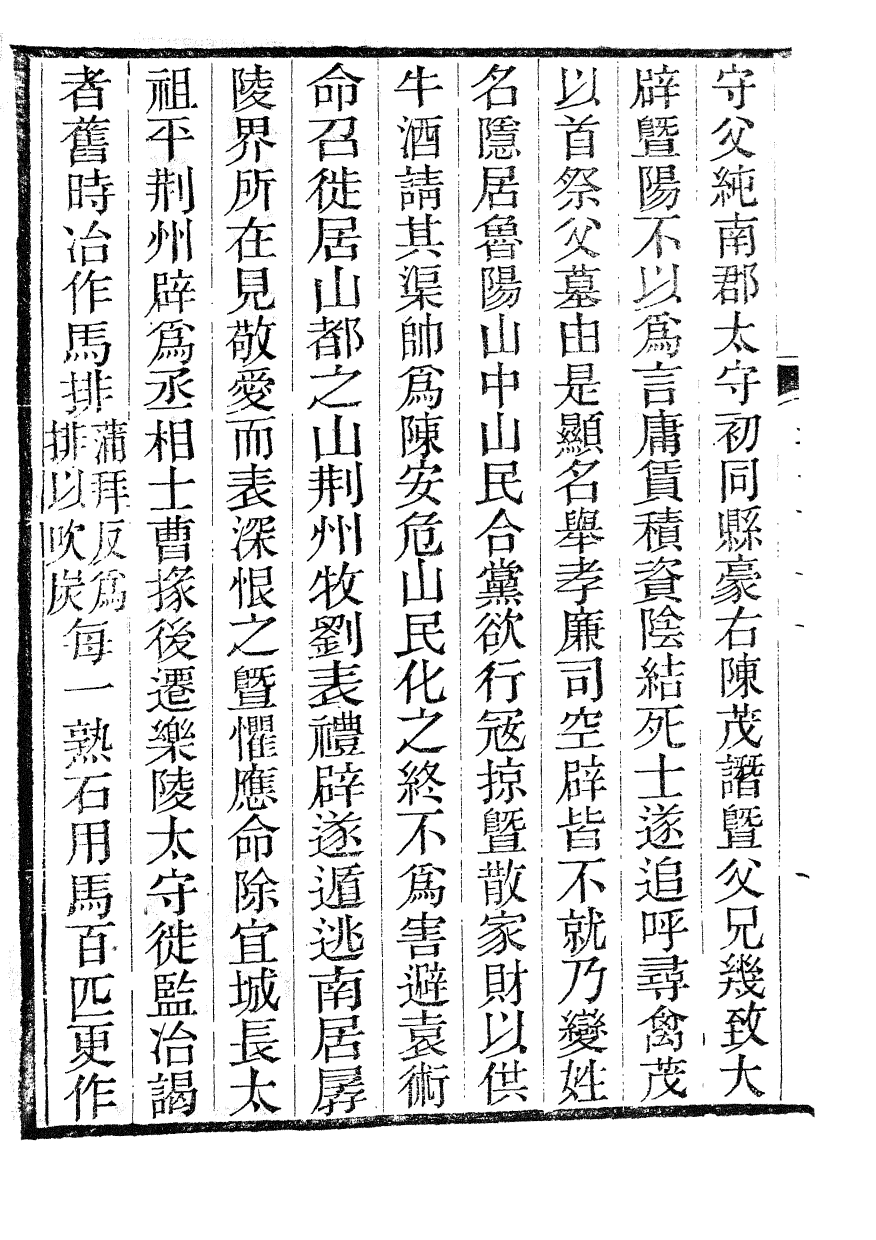 守父純南郡太守初同縣豪右陳茂譖曁父兄幾致大
辟曁陽不以爲言庸賃積資陰結死士遂追呼尋禽茂
以首祭父墓由是顯名舉孝廉司空辟皆不就乃變姓
名隱居魯陽山中山民合黨欲行寇掠曁散家財以供
牛酒請其渠帥爲陳安危山民化之終不爲害避袁術
命召徙居山都之山荆州牧劉表禮辟遂遁逃南居孱
陵界所在見敬愛而表深恨之曁懼應命除宜城長太
祖平荆州辟爲丞相士曹掾後遷樂陵太守徙監冶謁
者舊時冶作馬排蒲拜反爲排以吹炭每一熟石用馬百匹更作